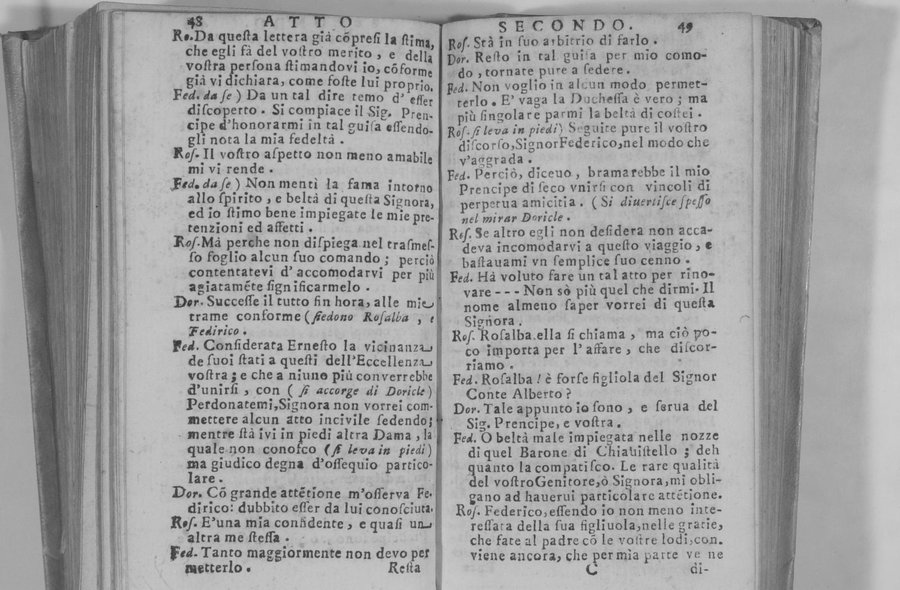 48 ATTO
Ro. Da queſta lettera già cōpreſi la ſtima,
che egli fà del voſtro merito, e della
voſtra perſona ſtimandovi io, cōforme
già vi dichiara, come foſte lui proprio.
Fed. da ſe) Da un tal dire temo d'eſſer
diſcoperto. Si compiace il Sig. Pren-
cipe d'honorarmi in tal guiſa eſſendo-
gli nota la mia fedeltà.
Roſ. Il voſtro aſpetto non meno amabile
mi vi rende.
Fed. da ſe) Non mentì la fama intorno
allo ſpirito, e beltà di queſta Signora,
ed io ſtimo bene impiegate le mie pre-
tenzioni ed affetti.
Roſ. Mà perche non diſpiega nel traſmeſ-
ſo foglio alcun ſuo comando; perciò
contentatevi d'accomodarvi per più
agiatamēte ſignificarmelo.
Dor. Succeſſe il tutto fin hora, alle mie
trame conforme (ſiedono Roſalba, e
Federico.
Fed. Conſiderata Erneſto la vicinanza
de ſuoi ſtati a queſti dell'Eccellenza
voſtra; e che a niuno più converrebbe
d'unirſi, con (ſi accorge di Doricle)
Perdonatemi, Signora non vorrei com-
mettere alcun atto incivile ſedendo;
mentre ſtà ivi in piedi altra Dama, la
quale non conoſco (ſi leva in piedi)
ma giudico degna d'oſſequio partico-
lare.
Dor. Cō grande attētione m'oſſerva Fe-
dirico: dubbito eſſer da lui conoſciuta.
Roſ. E'una mia confidente, e quaſi un
altra me ſteſſa.
Fed. Tanto maggiormente non devo per
metterlo. Reſta
SECONDO. 49
Roſ. Stà in ſuo arbitrio di farlo.
Dor. Reſto in tal guiſa per mio como-
do, tornate pure a ſedere.
Fed. Non voglio in alcun modo permet-
terlo. E' vaga la Ducheſſa è vero; ma
più ſingolare parmi la beltà di coſtei.
Roſ. ſi leva in piedi) Seguite pure il voſtro
diſcorſo, Signor Federico, nel modo che
v'aggrada.
Fed. Perciò, diceuo, bramarebbe il mio
Prencipe di ſeco vnirſi con vincoli di
perpetua amicitia. (Si diuertiſce ſpeſſo
nel mirar Doricle.
Roſ. Se altro egli non deſidera non acca-
deva incomodarvi a queſto viaggio, e
baſtauami vn ſemplice ſuo cenno.
Fed. Hà voluto fare un tal atto per rino-
vare --- Non sò più quel che dirmi. Il
nome almeno ſaper vorrei di queſta
Signora.
Roſ. Roſalba ella ſi chiama, ma ciò po-
co importa per l'affare, che diſcor-
riamo.
Fed. Roſalba! è forſe figliola del Signor
Conte Alberto?
Dor. Tale appunto io ſono, e ſerua del
Sig. Prencipe, e voſtra.
Fed. O beltà male impiegata nelle nozze
di quel Barone di Chiaviſtello; deh
quanto la compatiſco. Le rare qualità
del voſtro Genitore, ò Signora, mi obli-
gano ad hauerui particolare attētione.
Roſ. Federico, eſſendo io non meno inte-
reſſata della ſua figliuola, nelle gratie,
che fate al padre cō le voſtre lodi, con.
viene ancora, che per mia parte ve ne
C di-